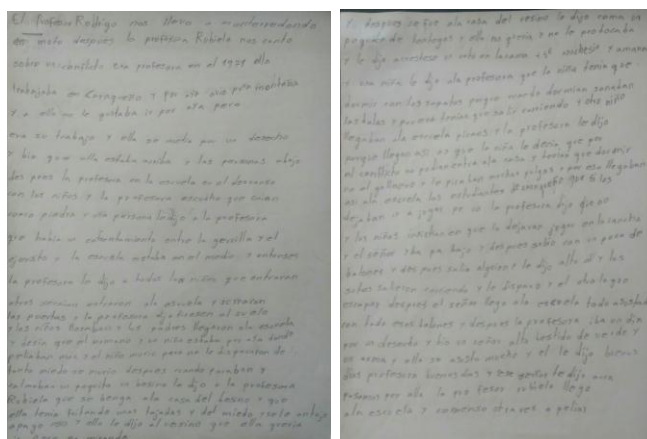 El profesor Rodrigo nos llevo a monterredondo
en moto despues la profesora Rubiela nos conto
sobre un conflicto esa profesora en el 1991 ella
trabajaba en y por asia una pura montaña
y a ella no le gustaba ir por asa pero
era su trabajo y ella se metia por un desecho
y bio que alla estaba arriba y las personas abajo
des pues la profesora en la escuela en el descanso
con los niños y la profesora escucho que caian
como piedra y una persona le dijo a la profesora
que habia un enfrentamiento entre la gerrilla y el
ejersito y la escuela estaba en el medio y entonses
la profesora le dijo a todos los niños que entraran
otros venian ala escuela y serraran
las puertas y la profesora dijo tiresen al suelo
y los niños lloraban y los padres llegaron ala escuela
y decia que el humano y un niño estaba por ala donde
peliaban mas y el niño murio pero no le dispararon de
tanto miedo se murio despues cuando paraban y
calmaban un poquito un besino le dijo a la profesora
Robiela que se benga ala casa del besino y que
ella tenia unas tajadas y del miedo
apago eso y ella le dijo al vesino que ella queria
y despues se fue ala casa del vesino le dijo coma un
poquito de y ella no queria y no le probocaba
y le dijo acuestese un rato en la cama y se anochesio y amanesio
y una niña le dijo ala profesora que la niña tenia que
dormir con los zapatos porque cuando dormian sonaban
las balas y por eso tenian que salir corriendo y otro niño
llegaban ala escuela picaos y la profesora le dijo
porque llegan asi no que la niña le decia que por
el conflicto no podian entra ala casa y tenian que dormir
en el gallinero y le picaban muchas pulgas y por eso llegaban
asi ala escuela los estudiantes que si los
dejaban ir a jugar pe ro la profesora dijo que no
y los niños insistian en que lo dejaran jugar en la cancha
y el señor iba pa bajo y despues salio con un poco de
balones y des pues salia alguien le dijo alto ahi y los
salieron corriendo y le disparo y el alcalogro
escapar despues el señor llego ala escuela todo asustado
con todos esos balones y despues la profesora iba un dia
por un desecho y bio un señor alto bestido de verde y
un arma y ella se asusto mucho y el le dijo buenos
dias profesora buenos dias y ese señor le dijo
pasamos por alla la pro fesora rubiela llego
ala escuela y comenso otra ves a peliar